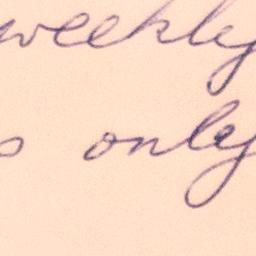 weekly
only